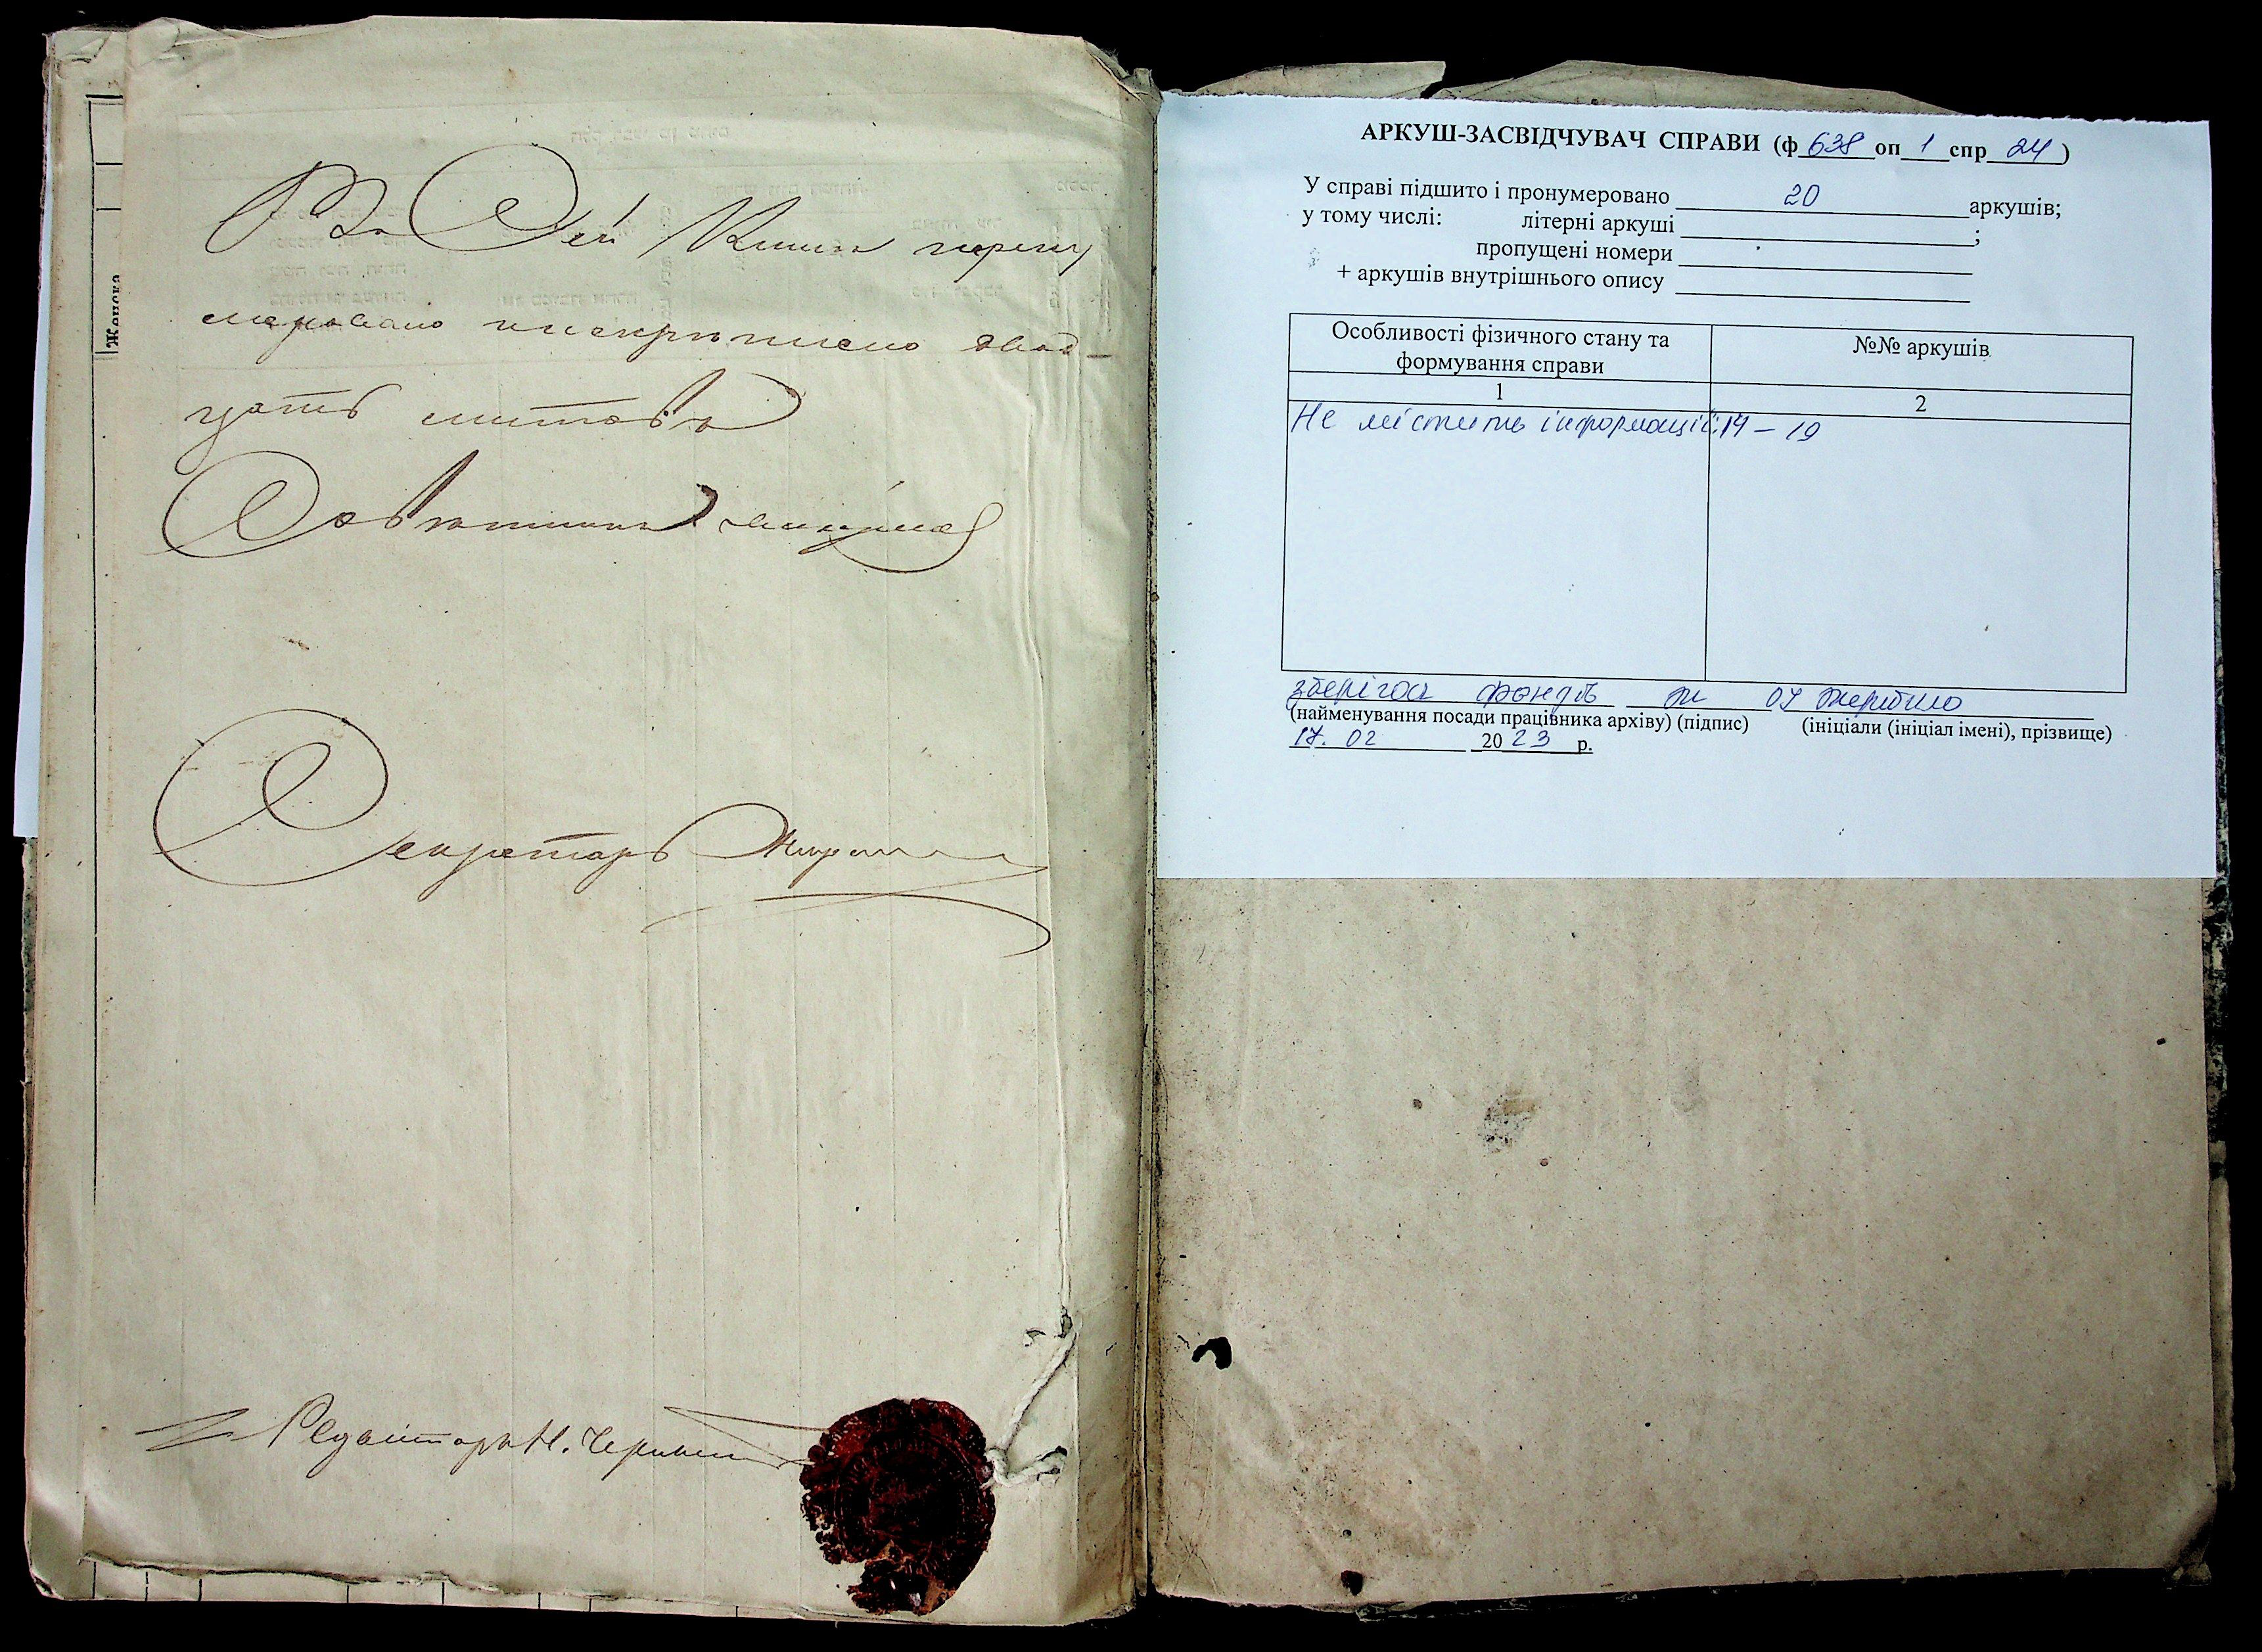 Въ Сей Книгѣ перену
меровано и скрѣплено двад-
цать листовъ
Совѣтникъ
Секретарь
Редакторъ Н.
Женска
АРКУШ-ЗАСВІДЧУВАЧ СПРАВИ (ф 638 оп 1 спр 24)
У справі підшито і пронумеровано 20 аркушів;
у тому числі: літерні аркуші ;
пропущені номери
+ аркушів внутрішнього опису
Особливості фізичного стану та формування справи
№№ аркушів
1
2
Не містить інформації: 14 – 19
зберігач фондів
(найменування посади працівника архіву) (підпис) (ініціали (ініціал імені), прізвище)
17. 02 2023 р.